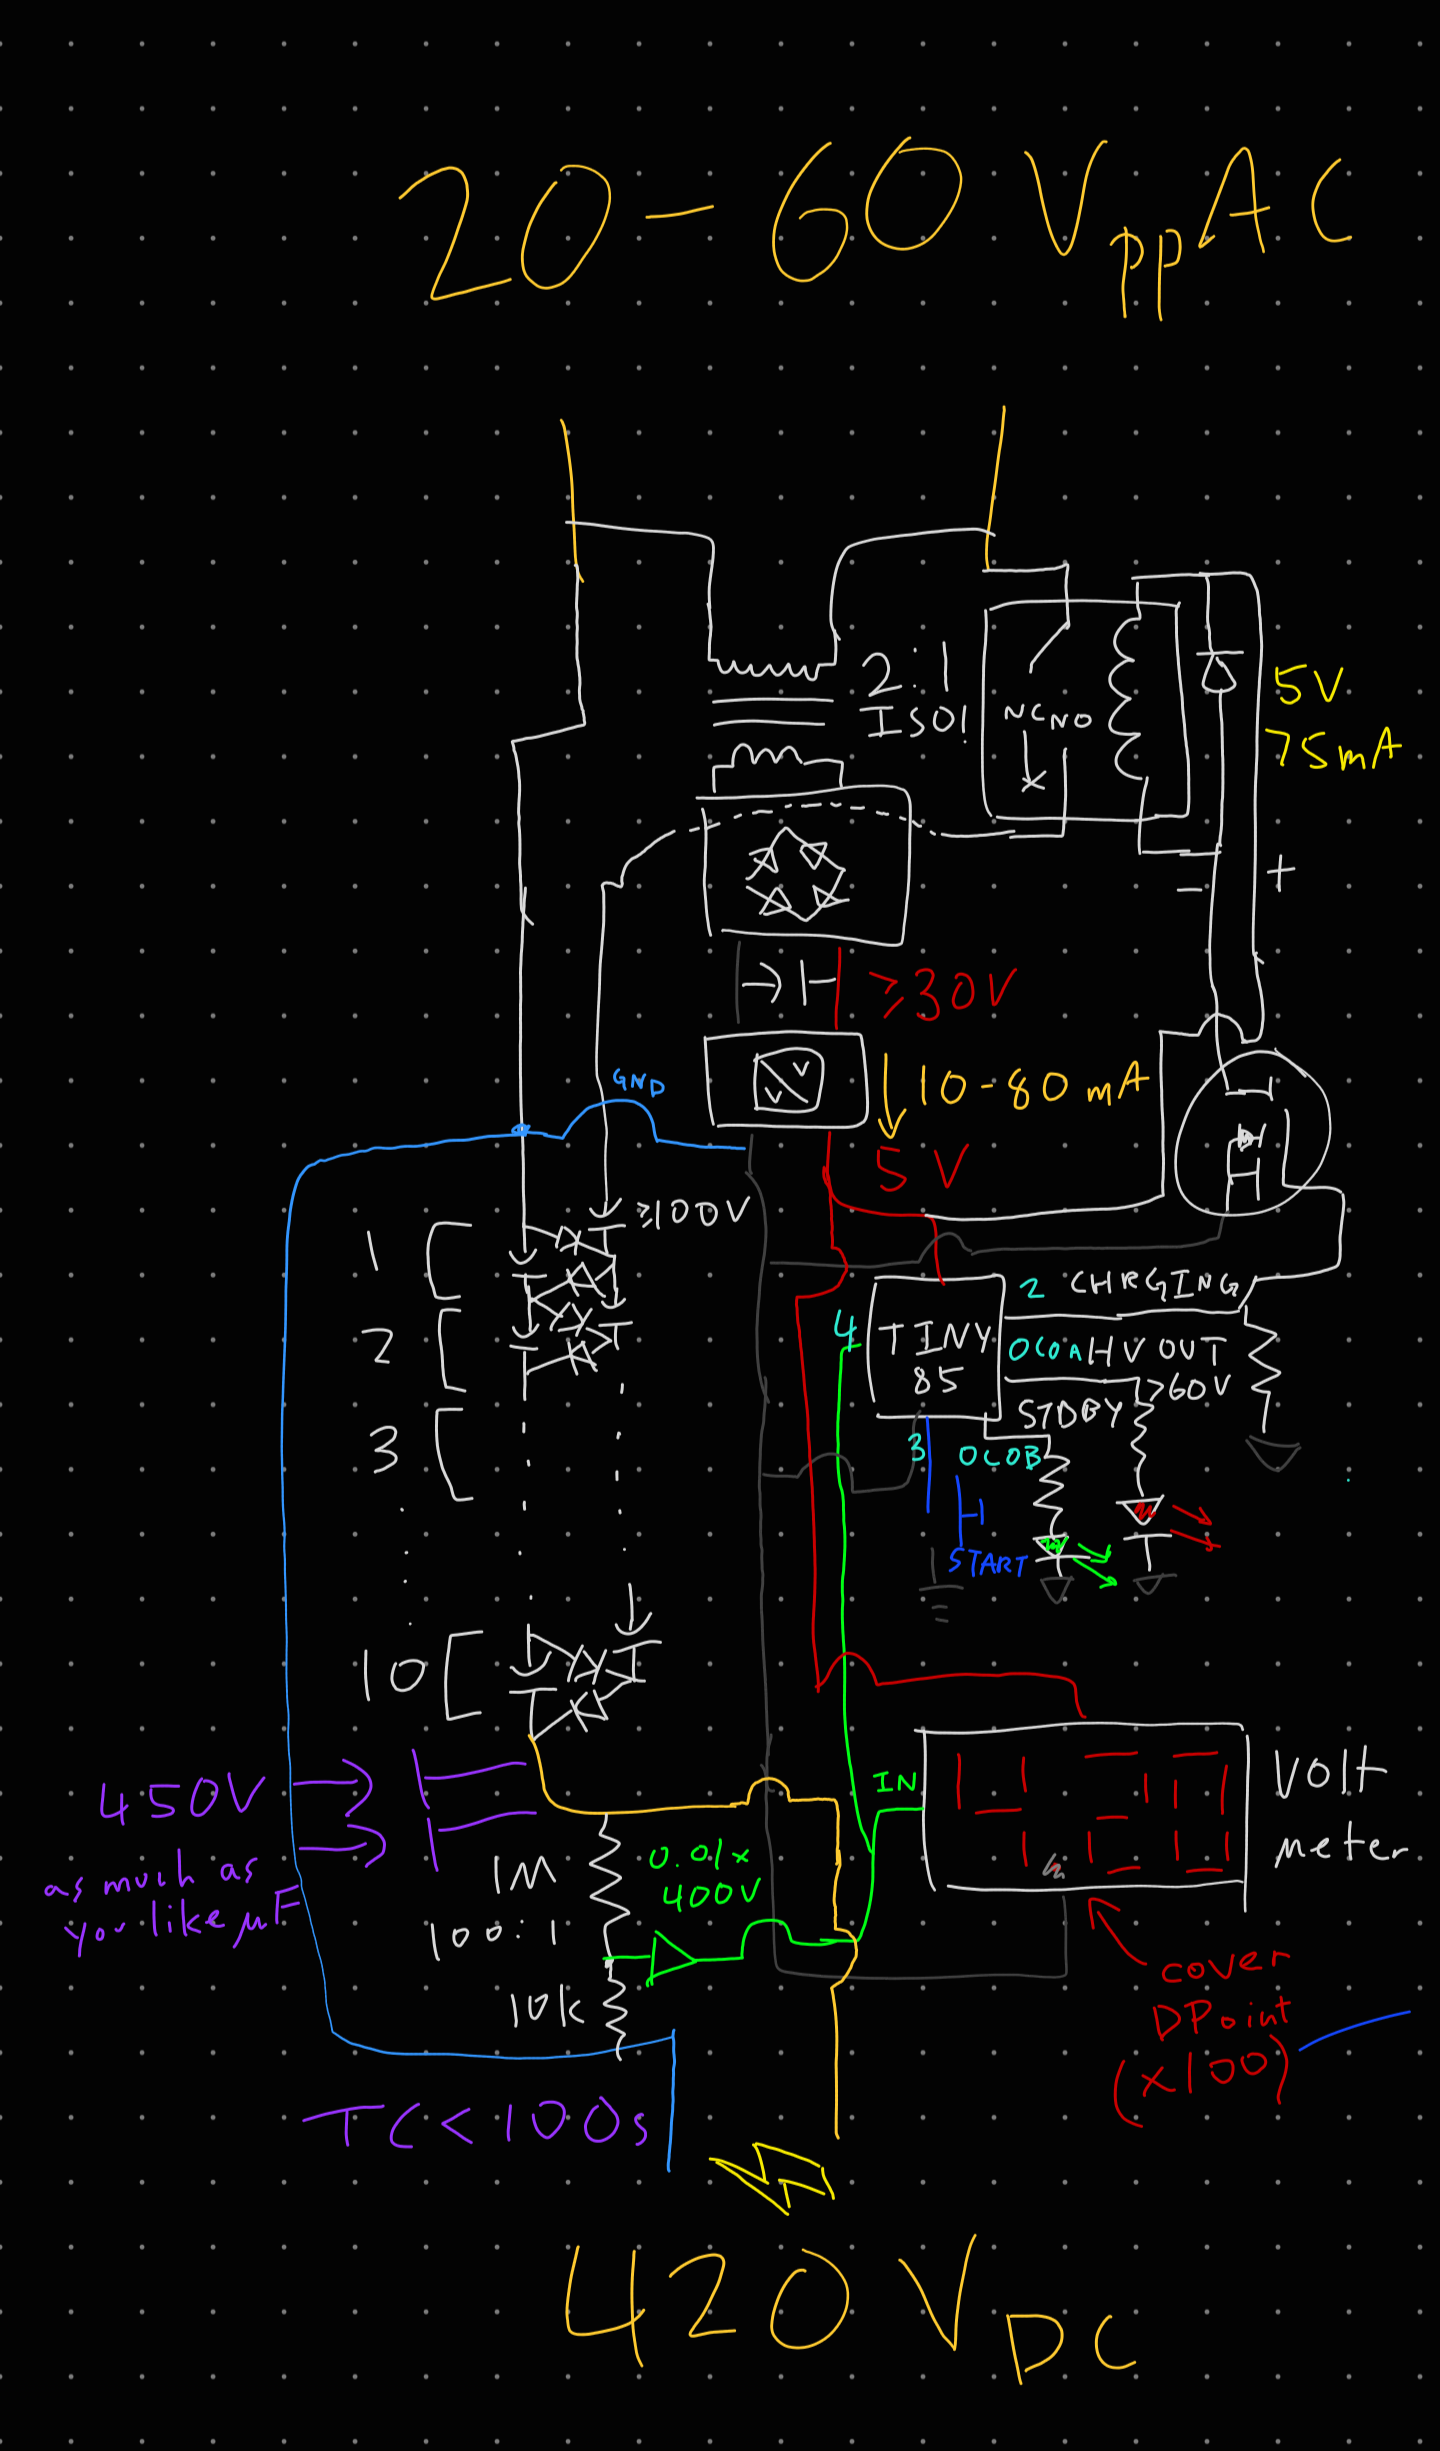 20-60 VppAC
2:1
ISO!
NC NO
5V
75mA
- +
≥30V
10-80 mA
V
V
GND
5V
≥100V
1
2
3
10
4
TINY
85
2 CHRGING
OC0A HV OUT
>60V
STDBY
3
OC0B
START
450V
as much as
you like µF
1M
100:1
10k
0.01x
400V
IN
4.20
Volt
meter
cover
DPoint
(x100)
TC<100s
420VDC